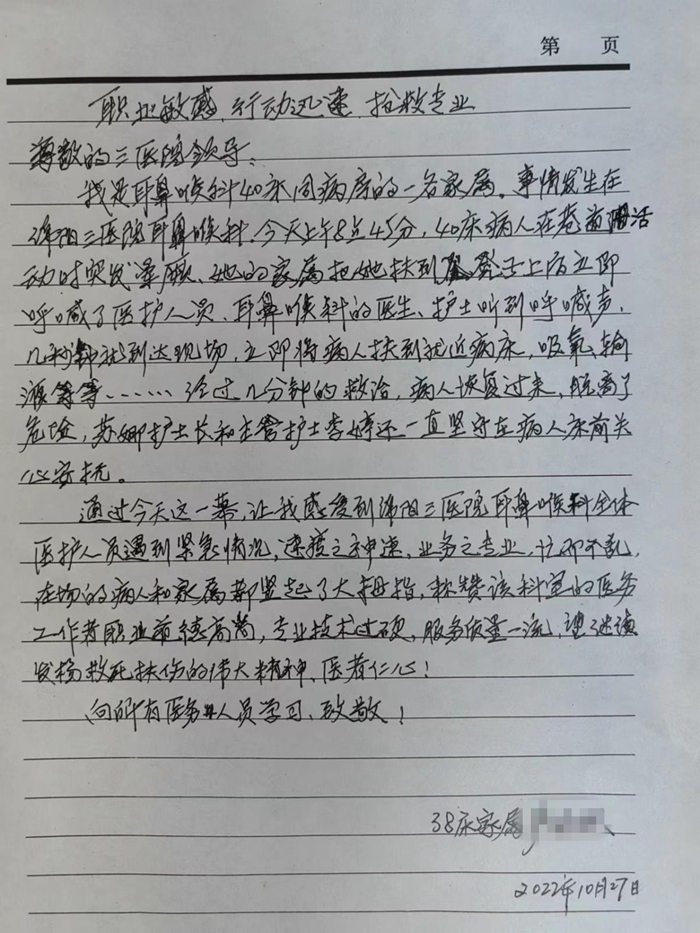 第 页
职业敏感、行动迅速、抢救专业
尊敬的三医院领导：
我是耳鼻喉科40床同病房的一名家属。事情发生在
绵阳三医院耳鼻喉科，今天上午8点45分，40床病人在巷道活
动时突发晕厥、她的家属把她扶到凳子上后立即
呼喊了医护人员，耳鼻喉科的医生、护士听到呼喊声，
几秒钟就到达现场，立即将病人扶到就近病床，吸氧、输
液等等……经过几分钟的救治，病人恢复过来，脱离了
危险，苏娜护士长和主管护士李婷还一直坚守在病人床前关
心安抚。
通过今天这一幕，让我感受到绵阳三医院耳鼻喉科全体
医护人员遇到紧急情况，速度之神速，业务之专业，忙而不乱，
在场的病人和家属都竖起了大拇指，称赞该科室的医务
工作者职业道德高尚，专业技术过硬，服务质量一流，望继续
发扬救死扶伤的伟大精神、医者仁心！
向所有医务人员学习、致敬！
38床家属
2022年10月27日